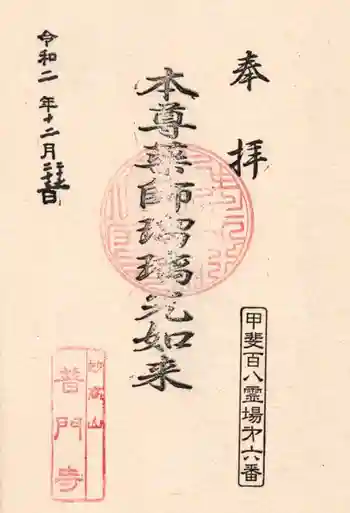 奉拝
甲斐百八霊場第六番
本尊薬師瑠璃光如来
令和二年十二月
妙高山
普門寺